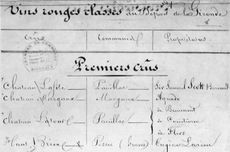 Vins rouges classés du départ. de la Gironde
Crus Communes Propriétaires
Premiers Crûs
Château Lafite Pauillac Sir Samuel Scott
Château Margaux Margaux Aguado
Château Latour Pauillac de Beaumont
de Courtivron
de Flers
Haut Brion Pessac Eugène Larrieu